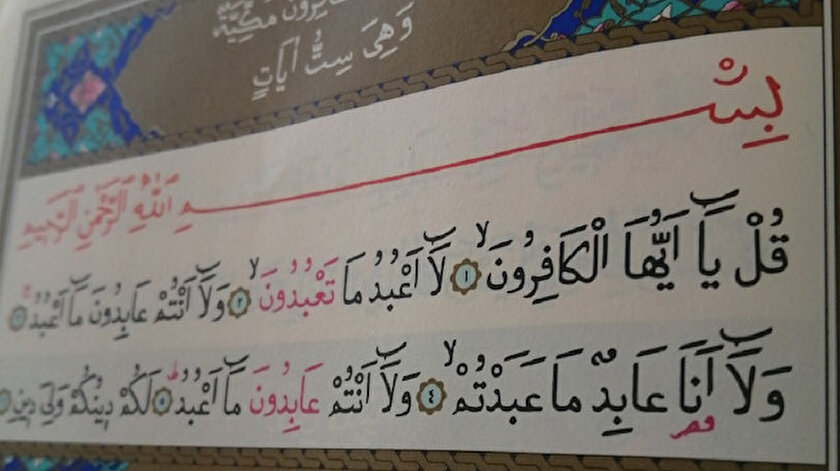 مَكِّيَّةٌ
وَهِيَ سِتُّ اٰيَاتٍ
بِسْمِ اللّٰهِ الرَّحْمٰنِ الرَّحِيمِ
قُلْ يَٓا اَيُّهَا الْكَافِرُونَۙ ﴿١﴾ لَٓا اَعْبُدُ مَا تَعْبُدُونَۙ ﴿٢﴾ وَلَٓا اَنْتُمْ عَابِدُونَ مَٓا اَعْبُدُۚ
وَلَٓا اَنَا۬ عَابِدٌ مَا عَبَدْتُمْۙ ﴿٤﴾ وَلَٓا اَنْتُمْ عَابِدُونَ مَٓا اَعْبُدُۜ ﴿٥﴾ لَكُمْ دِينُكُمْ وَلِيَ دِينِ